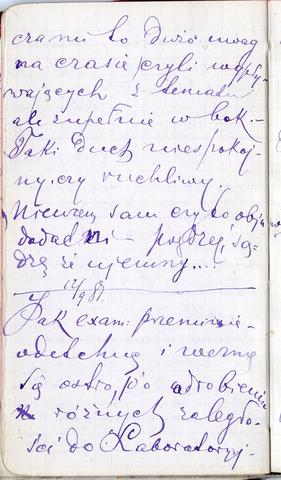 czami to dużo uwag
na czasie, czyli wypły-
wających z tematu
ale zupełnie w bok. -
Taki duch niespokoj-
ny czy ruchliwy.
Niewiem sam czy to objaw
dodatni - prędzej są-
dzę że ujemny....
12/9 81.
Jak exam. przeminie -
odetchnę i wezmę
się ostro, do odrobienia
różnych zaległo-
ści do Laboratoryj-